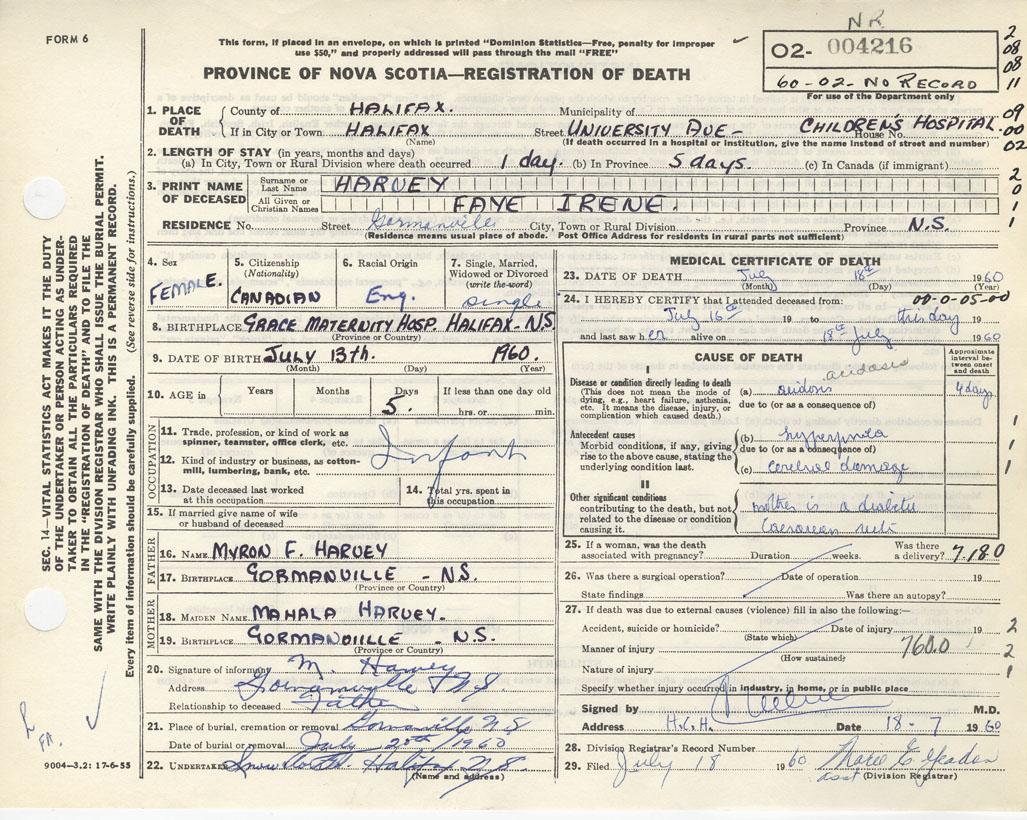 N.R.
FORM 6
This form, if placed in an envelope, on which is printed "Dominion Statistics—Free, penalty for improper
use $50," and properly addressed will pass through the mail "FREE"
02- 004216
60-02-NO RECORD
For use of the Department only
2
08
08
11
PROVINCE OF NOVA SCOTIA—REGISTRATION OF DEATH
1. PLACE OF DEATH
County of HALIFAX. Municipality of
If in City or Town HALIFAX Street UNIVERSITY AVE- CHILDREN'S HOSPITAL House No.
(Name) (If death occurred in a hospital or institution, give the name instead of street and number)
09
00
02
2. LENGTH OF STAY (in years, months and days)
(a) In City, Town or Rural Division where death occurred 1 day. (b) In Province 5 days. (c) In Canada (if immigrant)
3. PRINT NAME OF DECEASED
Surname or Last Name HARVEY
All Given or Christian Names FAYE IRENE.
2
0
1
1
RESIDENCE No. Street Gormanville City, Town or Rural Division Province N.S.
(Residence means usual place of abode. Post Office Address for residents in rural parts not sufficient)
4. Sex
FEMALE.
5. Citizenship
(Nationality)
CANADIAN
6. Racial Origin
Eng.
7. Single, Married,
Widowed or Divorced
(write the word)
single
8. BIRTHPLACE GRACE MATERNITY HOSP. HALIFAX-N.S
(Province or Country)
9. DATE OF BIRTH JULY 13th. 1960.
(Month) (Day) (Year)
10. AGE in Years Months Days If less than one day old
5. hrs. or min.
OCCUPATION
11. Trade, profession, or kind of work as
spinner, teamster, office clerk, etc.
Infant
12. Kind of industry or business, as cotton-
mill, lumbering, bank, etc.
13. Date deceased last worked
at this occupation
14. Total yrs. spent in
this occupation
15. If married give name of wife
or husband of deceased
FATHER
16. NAME MYRON F. HARVEY
17. BIRTHPLACE GORMANVILLE - N.S.
(Province or Country)
MOTHER
18. MAIDEN NAME MAHALA HARVEY.
19. BIRTHPLACE GORMANVILLE - N.S.
(Province or Country)
20. Signature of informant M. Harvey
Address Gormanville N.S.
Relationship to deceased Father
21. Place of burial, cremation or removal Gormanville N S
Date of burial or removal July 20th/1960
22. UNDERTAKER Halifax N.S.
(Name and address)
MEDICAL CERTIFICATE OF DEATH
23. DATE OF DEATH July 18th 1960
(Month) (Day)
24. I HEREBY CERTIFY that I attended deceased from: 00-0-05-00
July 16th 19 to this day 19
and last saw her alive on 18th July 1960
CAUSE OF DEATH
Approximate
interval between
onset
and death
I
acidosis
Disease or condition directly leading to death
(This does not mean the mode of
dying, e.g., heart failure, asthenia,
etc. It means the disease, injury, or
complication which caused death.)
(a) acidosis 4 days
due to (or as a consequence of)
Antecedent causes
Morbid conditions, if any, giving
rise to the above cause, stating the
underlying condition last.
(b)
due to (or as a consequence of)
(c) cerebral damage
1
1
1
II
Other significant conditions
contributing to the death, but not
related to the disease or condition
causing it.
mother is a diabetic
Caesarean
25. If a woman, was the death
associated with pregnancy? Duration weeks. Was there
a delivery? 7,180
26. Was there a surgical operation? Date of operation 19
State findings Was there an autopsy?
27. If death was due to external causes (violence) fill in also the following:—
Accident, suicide or homicide? Date of injury 19
(State which)
Manner of injury 760.0
(How sustained)
Nature of injury
2
2
1
Specify whether injury occurred in industry, in home, or in public place
Signed by M.D.
Address H.C.H. Date 18-7 1960
28. Division Registrar's Record Number
29. Filed July 18 1960
asst (Division Registrar)
SEC. 14—VITAL STATISTICS ACT MAKES IT THE DUTY
OF THE UNDERTAKER OR PERSON ACTING AS UNDER-
TAKER TO OBTAIN ALL THE PARTICULARS REQUIRED
IN THE "REGISTRATION OF DEATH" AND TO FILE THE
SAME WITH THE DIVISION REGISTRAR WHO SHALL ISSUE THE BURIAL PERMIT.
WRITE PLAINLY WITH UNFADING INK. THIS IS A PERMANENT RECORD.
Every item of information should be carefully supplied. (See reverse side for instructions.)
FA.
9004—3.2: 17-6-55